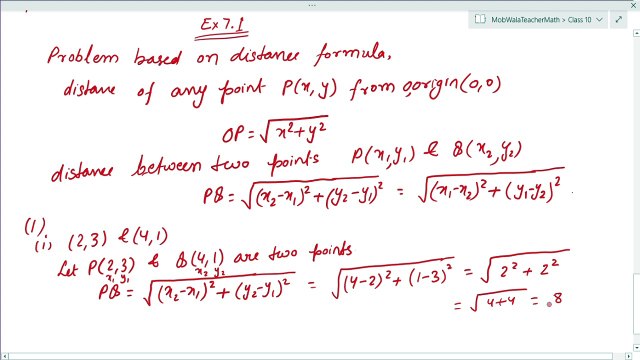 MobWalaTeacherMath > Class 10
Ex 7.1
Problem based on distance formula,
distane of any point P(x,y) from origin(0,0)
OP = √x²+y²
distane between two points P(x₁,y₁) & Q(x₂,y₂)
PQ = √(x₂-x₁)²+(y₂-y₁)² = √(x₁-x₂)²+(y₁-y₂)²
(1)
(i) (2,3) & (4,1)
Let P(2,3) & Q(4,1) are two points
x₁ y₁ x₂ y₂
PQ = √(x₂-x₁)²+(y₂-y₁)² = √(4-2)²+(1-3)² = √2²+2²
= √4+4 = 8